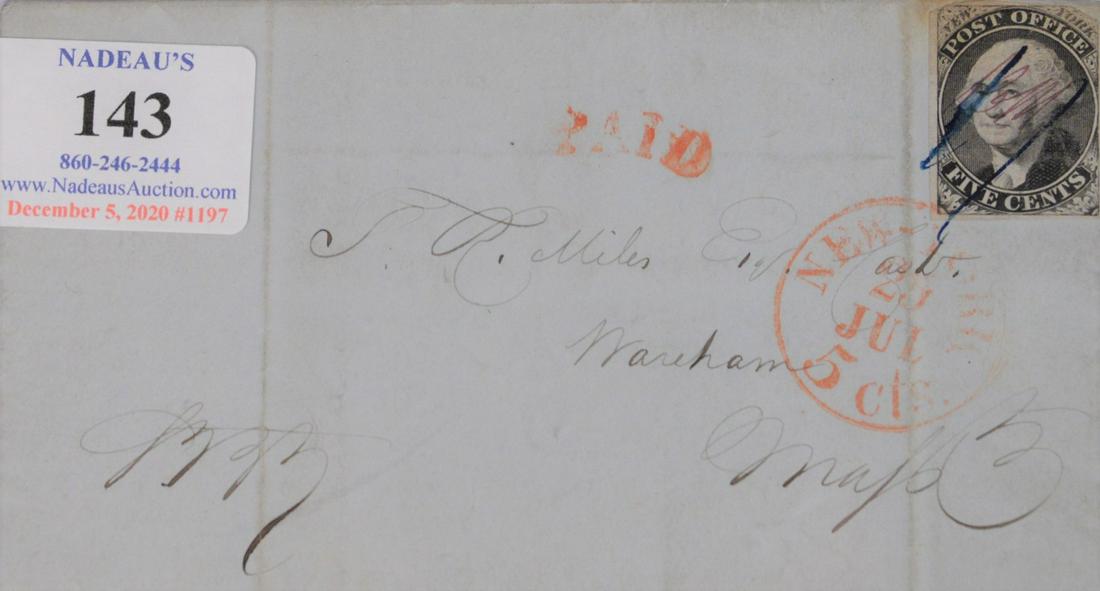 NADEAU'S
143
860-246-2444
www.NadeausAuction.com
December 5, 2020 #1197
NEW YORK
POST OFFICE
FIVE CENTS
PAID
NEW-YORK
JUL
5 Cts.
Miles Esq. Cash.
Wareham
Mass